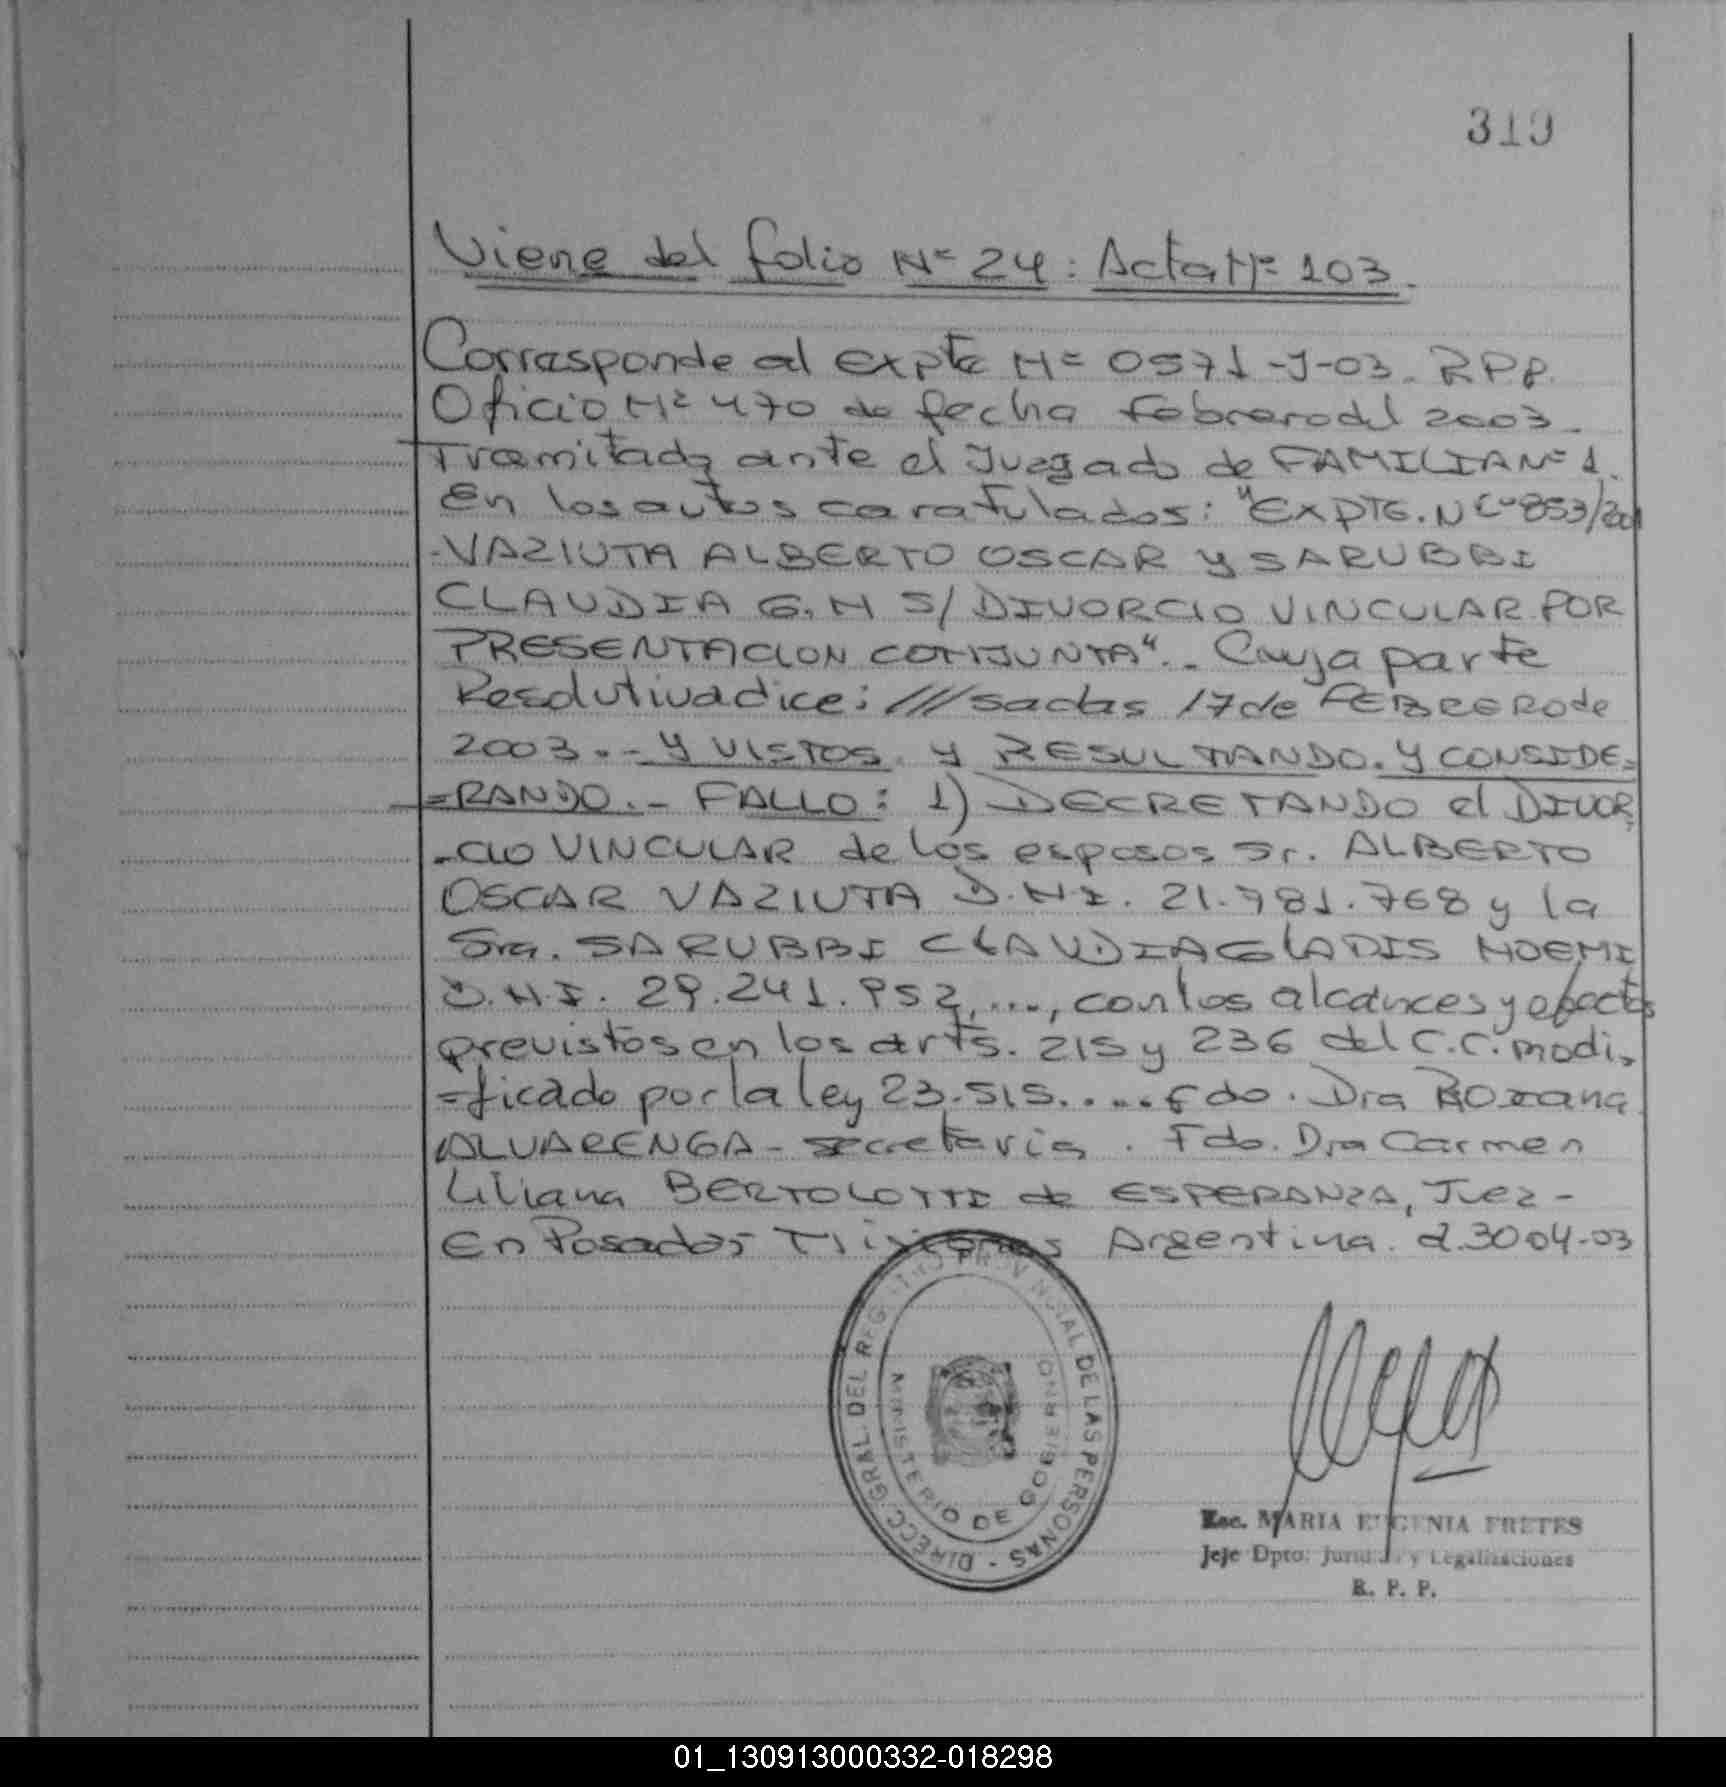 319
Viene del folio Nº 24 : Acta Nº 103.
Corresponde al expte Nº 0571-J-03. RPP.
Oficio Nº 470 de fecha febrero del 2003.
Tramitada ante el Juzgado de FAMILIA Nº 1.
En los autos caratulados: "EXPTE. Nº 853/2001
-VAZIUTA ALBERTO OSCAR y SARUBBI
CLAUDIA G. N S/ DIVORCIO VINCULAR POR
PRESENTACION CONJUNTA".- Cuya parte
Resolutiva dice: ///sadas 17 de FEBRERO de
2003.- Y VISTOS y RESULTANDO. Y CONSIDE=
=RANDO.- FALLO: 1) DECRETANDO el DIVOR
-CIO VINCULAR de los esposos Sr. ALBERTO
OSCAR VAZIUTA D.N.I. 21.781.768 y la
Sra. SARUBBI CLAUDIA GLADIS NOEMI
D.N.I. 29.241.952, ..., con los alcances y efectos
previstos en los arts. 215 y 236 del C.C. modi-
=ficado por la ley 23.515. .... Fdo. Dra Roxana
ALVARENGA - secretaria. Fdo. Dra Carmen
Liliana BERTOLOTTI de ESPERANZA, Juez -
En Posadas Misiones Argentina. a 30 04-03
DIRECC. GRAL. DEL REGISTRO PROVINCIAL DE LAS PERSONAS -
MINISTERIO DE GOBIERNO
Esc. MARIA EUGENIA FRETES
Jefe Dpto. y Legalizaciones
R. P. P.
01_130913000332-018298